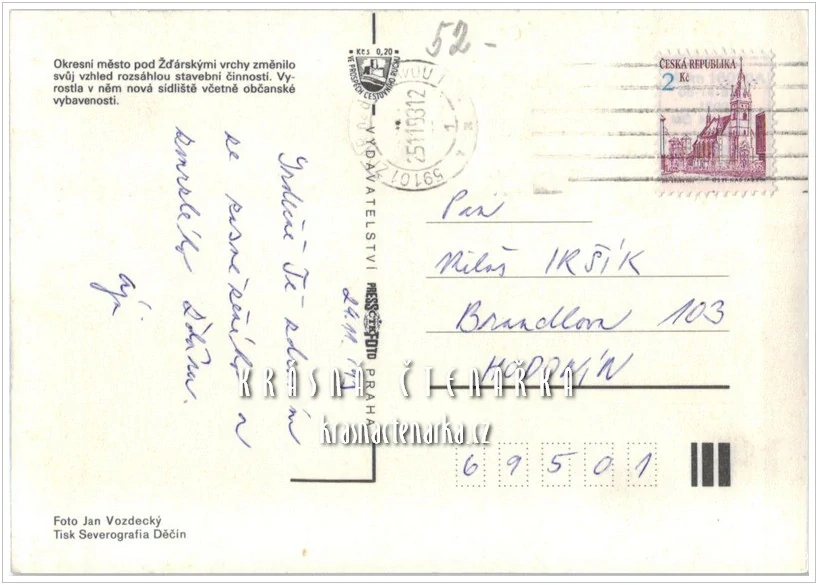 Okresní město pod Žďárskými vrchy změnilo
svůj vzhled rozsáhlou stavební činností. Vy-
rostla v něm nová sídliště včetně občanské
vybavenosti.
Kčs 0,20
VE PROSPĚCH CESTOVNÍHO RUCHU
52-
ČESKÁ REPUBLIKA
2 Kč
59101
2511 93 12
1
24. 11. 1993
Srdečně Tě zdravím
ze zasněženého a
zmrzlého Žďáru.
VYDAVATELSTVÍ PRESSFOTO PRAHA
Pan
Miloš IRŠÍK
Brandlova 103
HODONÍN
69501
KRÁSNÁ ČTENÁRKA
krasnactenarka.cz
Foto Jan Vozdecký
Tisk Severografia Děčín